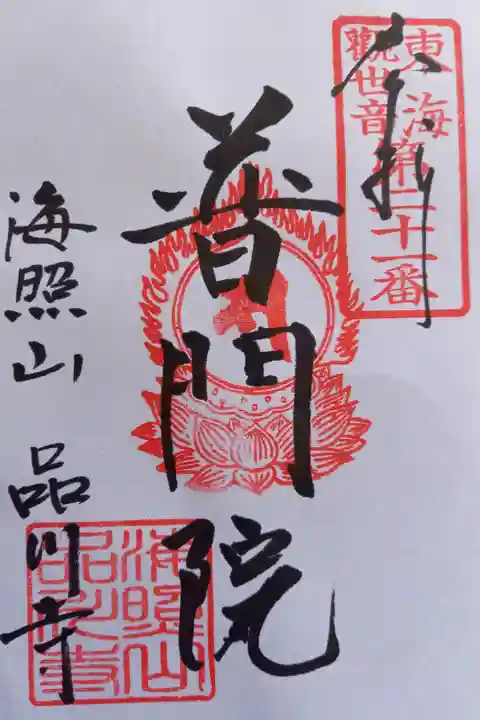 奉拝
東海
觀世音
第三十一番
普門院
海照山 品川寺
海照山
品川寺